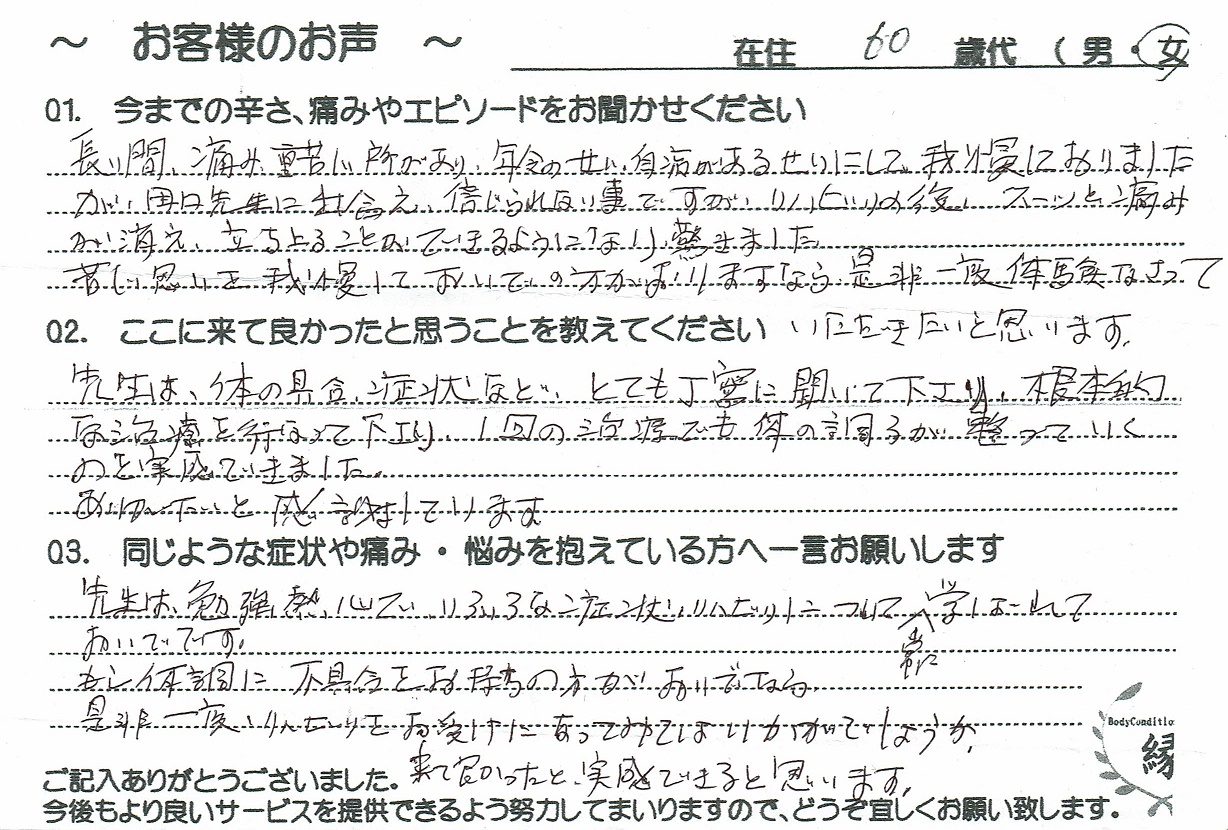 ～ お客様のお声 ～ 在住 60 歳代 （ 男 ・ 女
Q1. 今までの辛さ、痛みやエピソードをお聞かせください
長い間、痛み、重苦しい所があり、年令のせい、自病があるせいにして、我慢しておりました
が、田口先生に出会え、信じられない事ですが、いんだりの後、スーッと痛み
が消え、立ち上ることができるようになり、驚きました。
苦しい思いを我慢しておいでの方がおりますなら是非一度体験なさって
いただきたいと思います。
Q2. ここに来て良かったと思うことを教えてください
先生は、体の具合、症状など、とても丁寧に聞いて下さり、根本的
な治療を行なって下さり、1回の治療でも体の調子が整っていく
のを実感できました。
ありがたいと感謝しています
Q3. 同じような症状や痛み・悩みを抱えている方へ一言お願いします
先生は、勉強熱心で、いろいろな症状、いんだりについて常に学ばれて
おいでです。
もし体調に不具合をお持ちの方がおいでなら、
是非一度いんだりをお受けになってみてはいかがでしょうか。
来て良かったと、実感できると思います。
BodyConditio
縁
ご記入ありがとうございました。
今後もより良いサービスを提供できるよう努力してまいりますので、どうぞ宜しくお願い致します。